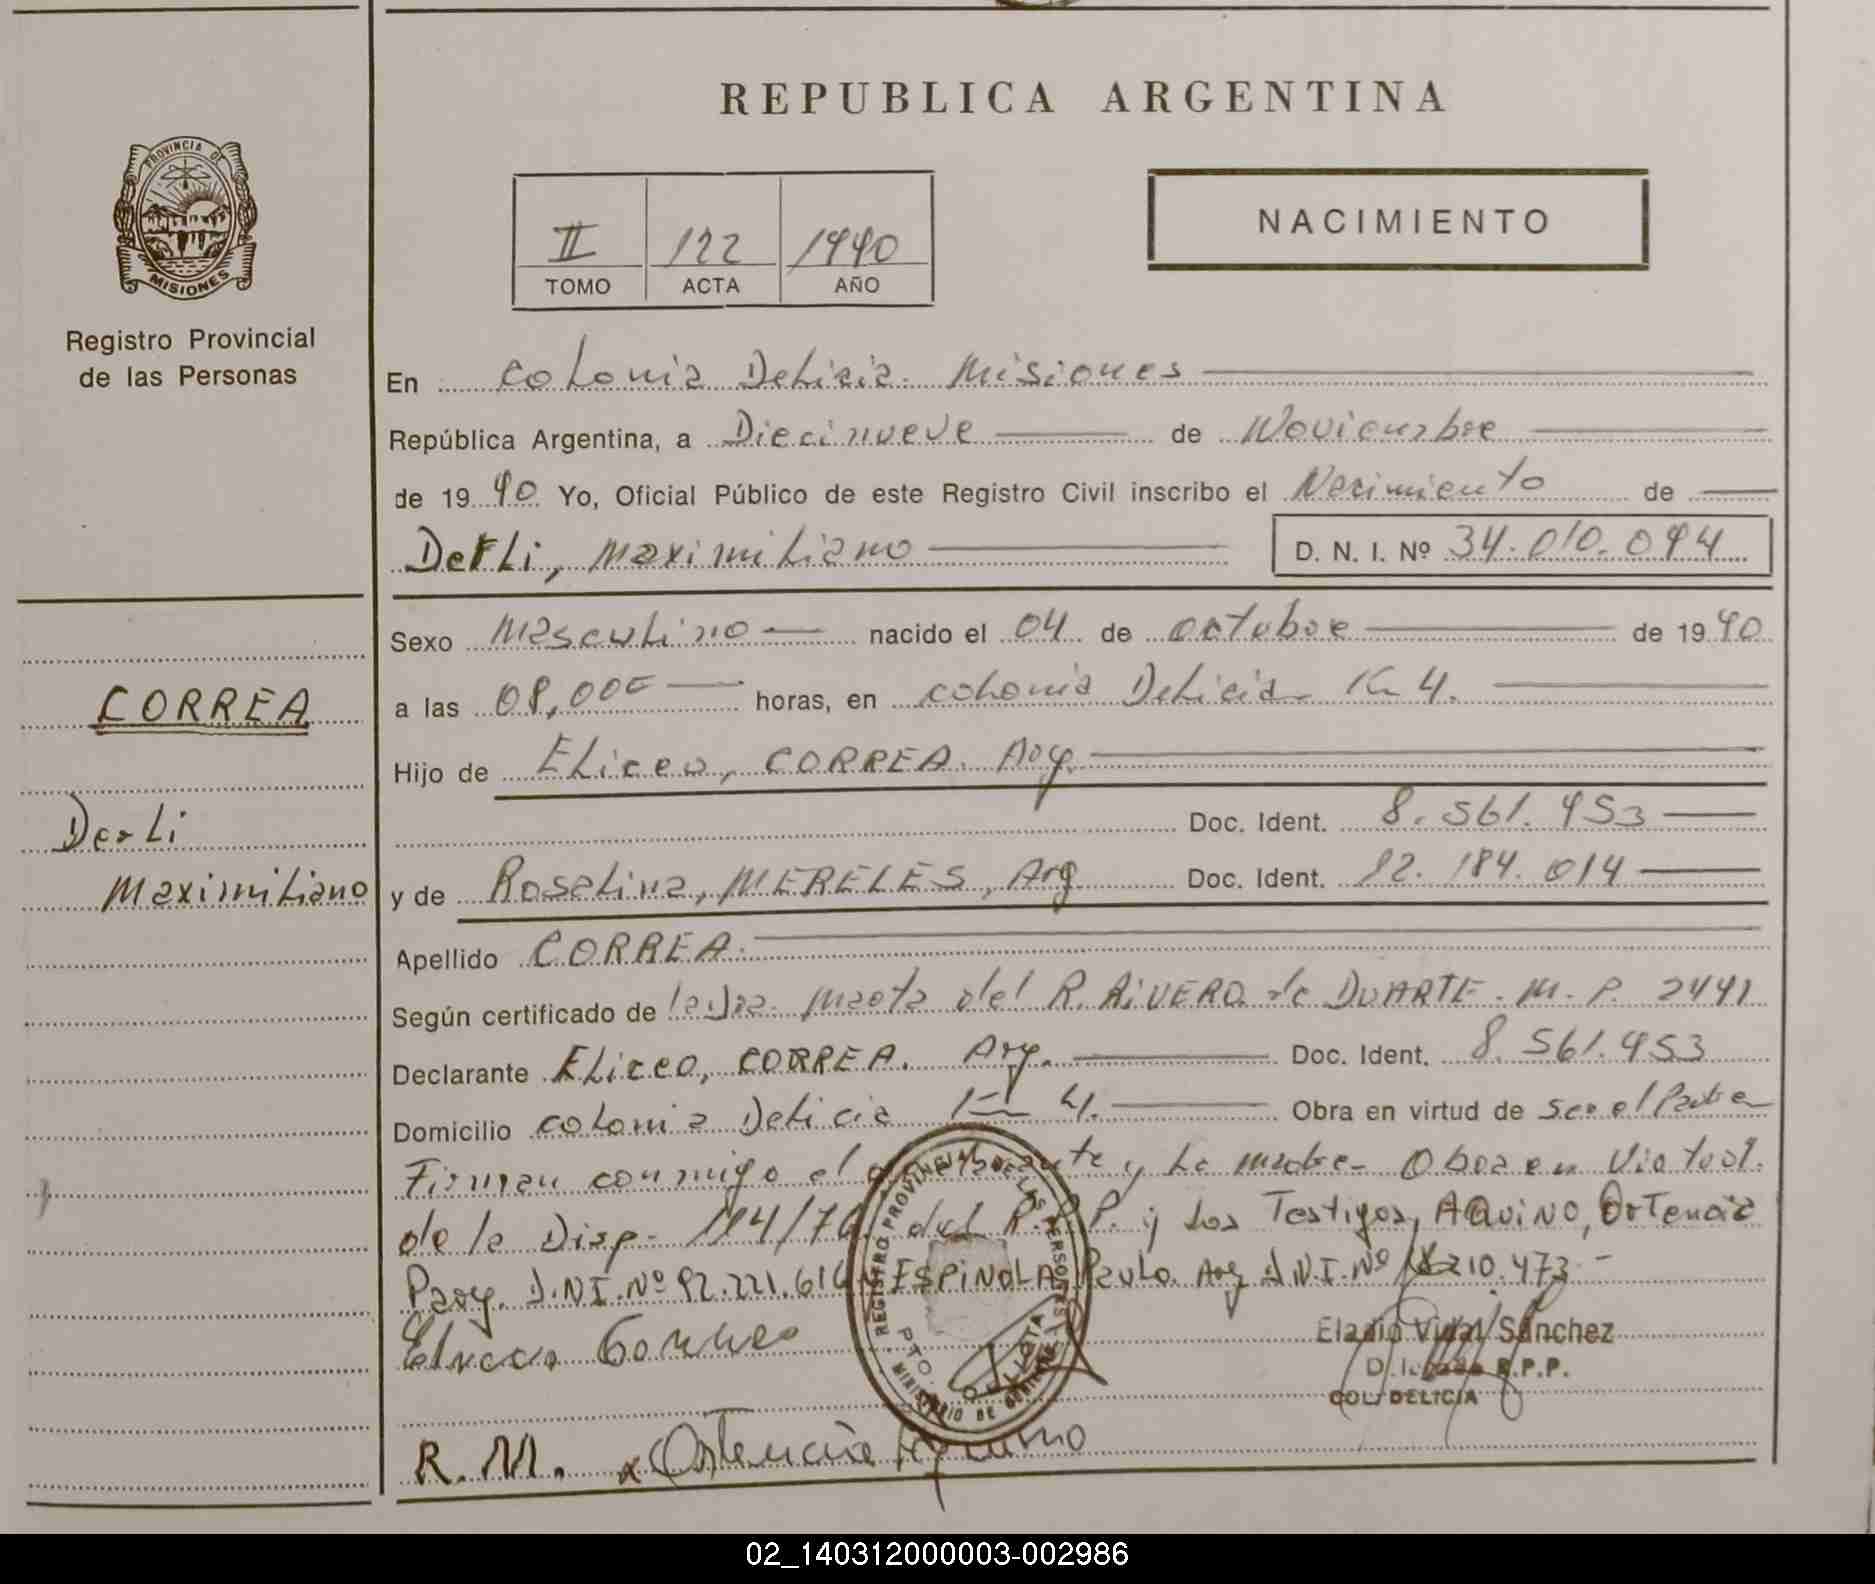 REPUBLICA ARGENTINA
PROVINCIA DE
MISIONES
Registro Provincial
de las Personas
II 122 1990
TOMO ACTA AÑO
NACIMIENTO
En Colonia Delicia. Misiones
República Argentina, a Diecinueve de Noviembre
de 1990 Yo, Oficial Público de este Registro Civil inscribo el Nacimiento de
Derli, Maximiliano D. N. I. Nº 34.010.094
Sexo Masculino nacido el 04 de octubre de 1990
a las 08,00 horas, en colonia Delicia Km 4.
Hijo de Eliceo, CORREA. Arg.
Doc. Ident. 8.561.953
y de Rosalina, MERELES, Arg Doc. Ident. 12.184.014
Apellido CORREA.
Según certificado de la Dra. Marta del R. RIVERO de DUARTE. M.P. 2441
Declarante Eliceo, CORREA. Arg. Doc. Ident. 8.561.953
Domicilio colonia Delicia Km 4. Obra en virtud de ser el Padre
Firman conmigo el y la madre- Obra en Virtud.
de la Disp- 114/76 del R.P.P. y los Testigos, AQUINO, Ortencia
Parg. D.N.I. Nº 92.221.616 ESPINOLA, Paulo. Arg D.N.I. Nº 210.473-
CORREA
Derli
Maximiliano
REGISTRO PROVINCIAL DE LAS PERSONAS
MINISTERIO DE
PTO. DELICIA
Eladio Vidal Sánchez
R.P.P.
COL. DELICIA
R.M. x Ortencia Aquino
02_140312000003-002986